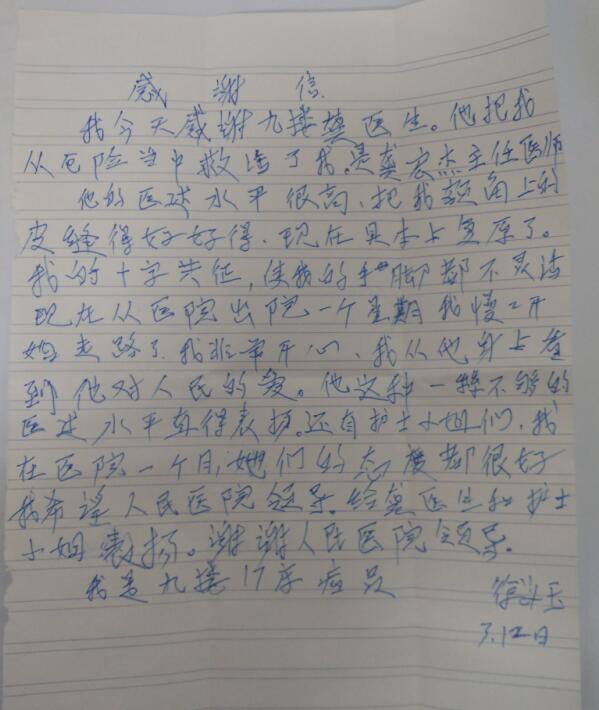 感谢信
我今天感谢九搂龚医生。他把我
从厄险当中救治了我.是龚宏杰主任医师
他的医述水平很高、把我额角上的
皮缝得好好得.现在具本上复原了。
我的十字共征,使我的手脚都不灵活
现在从医院出院一个星期我慢二开
始走路了.我非常开心、我从他身上看
到他对人民的爱。他这种一特不够的
医述水平直得表扬.还有护士小姐们、我
在医院一个月,她们的态度都很好
我希望人民医院领导.给龚医生和护士
小姐表扬。谢谢人民医院领导.
我是九搂17床病员
玉
3.12日